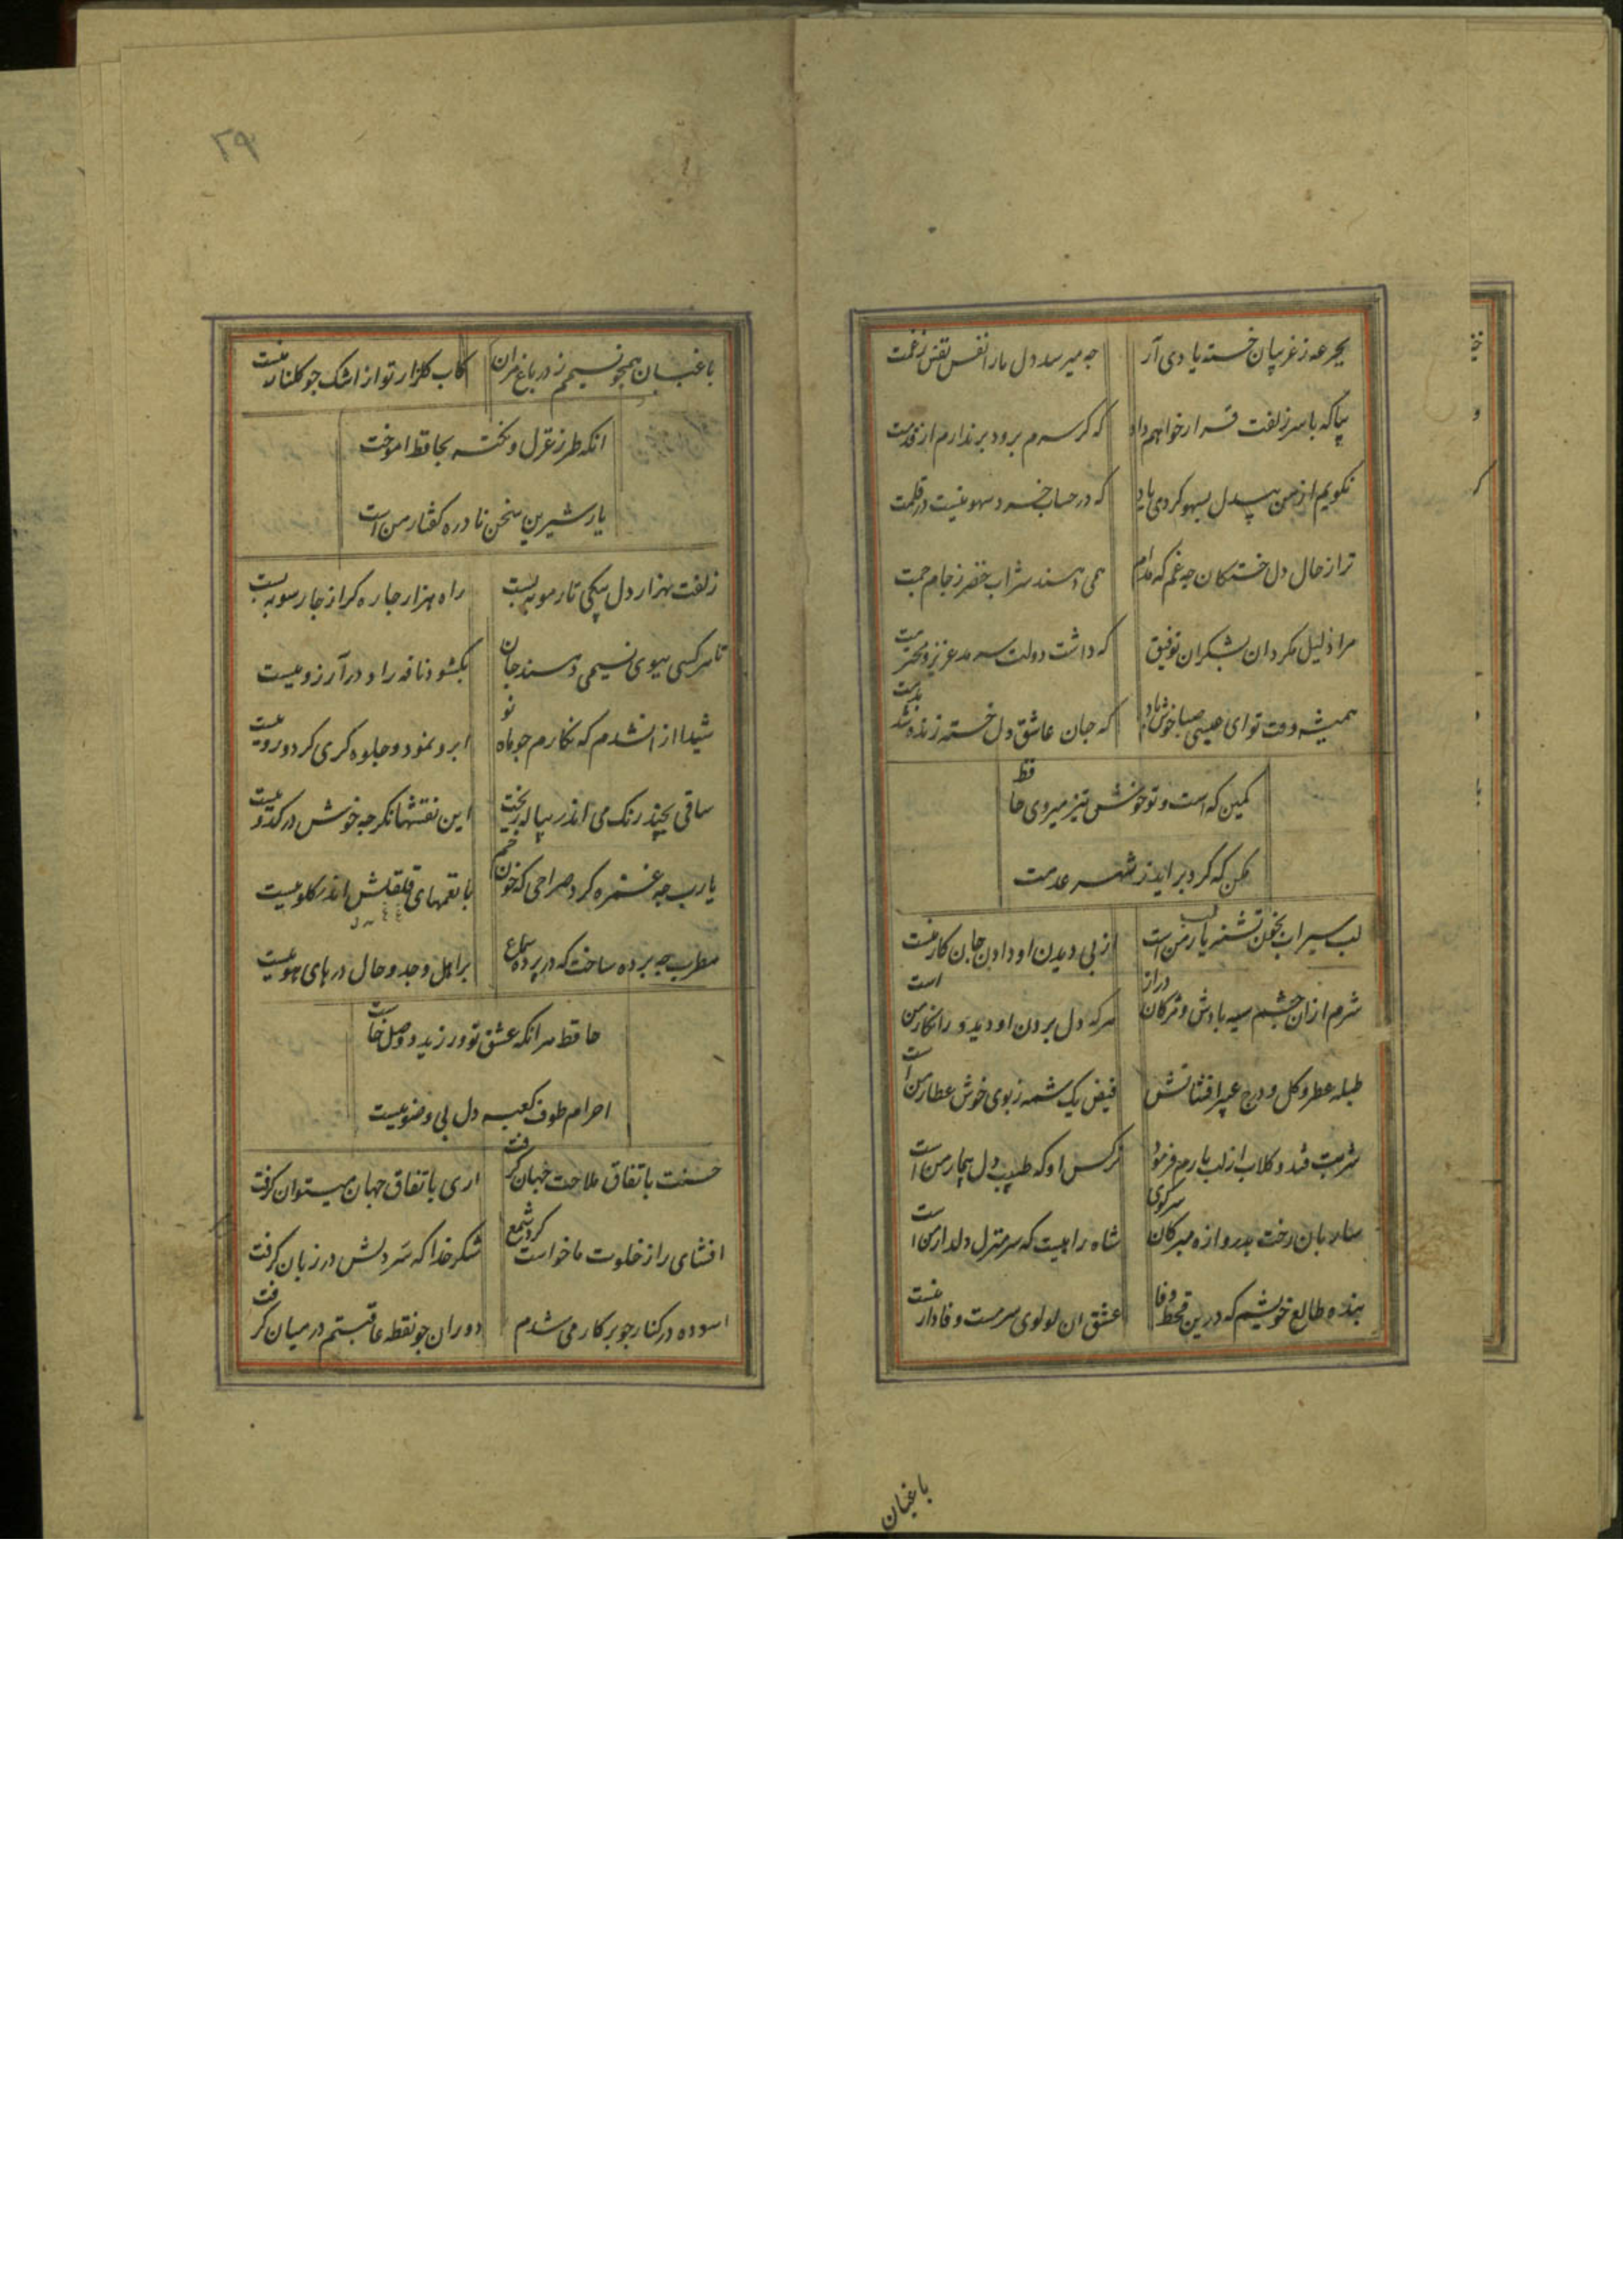 بجرعه ز غریبان خسته یادی آر
چه میرسد دل ما را نفس نفس ز غمت
بیا که با سر زلفت قرار خواهم داد
که کر سرم برود بر ندارم از قدمت
نکویم از من بیدل بسهو کردی یاد
که در حساب خرد سهو نیست در قلمت
ترا ز حال دل خستکان چه غم که مدام
همی دهند شراب خضر ز جام جمت
مرا ذلیل مکردان بشکر ان توفیق
که داشت دولت سرمد عزیز و محترمت
همیشه وقت تو ای عیسی صبا خوش باد
که جان عاشق دل خسته زنده شد بدمت
کمین که است و تو خوش تیز میروی حافظ
مکن که کرد بر اید ز شهر عدمت
لب سیراب بخون تشنه لب یار من است
از پی دیدن او دادن جان کار منست
شرم از ان چشم سیه بادش و مژکان دراز
هرکه دل بردن او دید و در انکار من است
طبله عطر و کل و درج عبیر افشانش
فیض یک شمه ز بوی خوش عطار من است
شربت قند و کلاب از لب یارم فرمود
نرکس او که طبیب دل بیمار من است
ساربان رخت بدروازه مبر کان سر کوی
شاه راهیست که سر منزل دلدار من است
بنده طالع خویشم که درین قحط وفا
عشق ان لولوی سرمست وفادار منست
باغبان
۲۹
باغبان همچو نسیمم ز در باغ مران
کاب کلزار تو از اشک چو کلنار منست
انکه طرز غزل و نکته بحافظ اموخت
یار شیرین سخن نادره کفتار من است
زلفت هزار دل بیکی تار مو به بست
راه هزار چاره کر از چار سو به بست
تا هر کسی ببوی نسیمی دهند جان
بکشود نافه را و در آرزو ببست
شیدا از انشدم که نکارم چو ماه نو
ابرو نمود و جلوه کری کرد و رو ببست
ساقی بچند رنک می اندر پیاله ریخت
این نقشها نکر چه خوش در کدو ببست
یارب چه غمزه کرد صراحی که خون خم
با نغمهای قلقلش اندر کلو ببست
مطرب چه پرده ساخت که در پرده سماع
بر اهل وجد و حال در های هو ببست
حافظ هر انکه عشق تو ورزید و وصل خواست
احرام طوف کعبه دل بی وضو ببست
حسنت باتفاق ملاحت جهان کرفت
اری باتفاق جهان میتوان کرفت
افشای راز خلوت ما خواست کرد شمع
شکر خدا که سر دلش در زبان کرفت
اسوده در کنار چو پرکار می شدم
دوران چو نقطه عاقبتم در میان کرفت